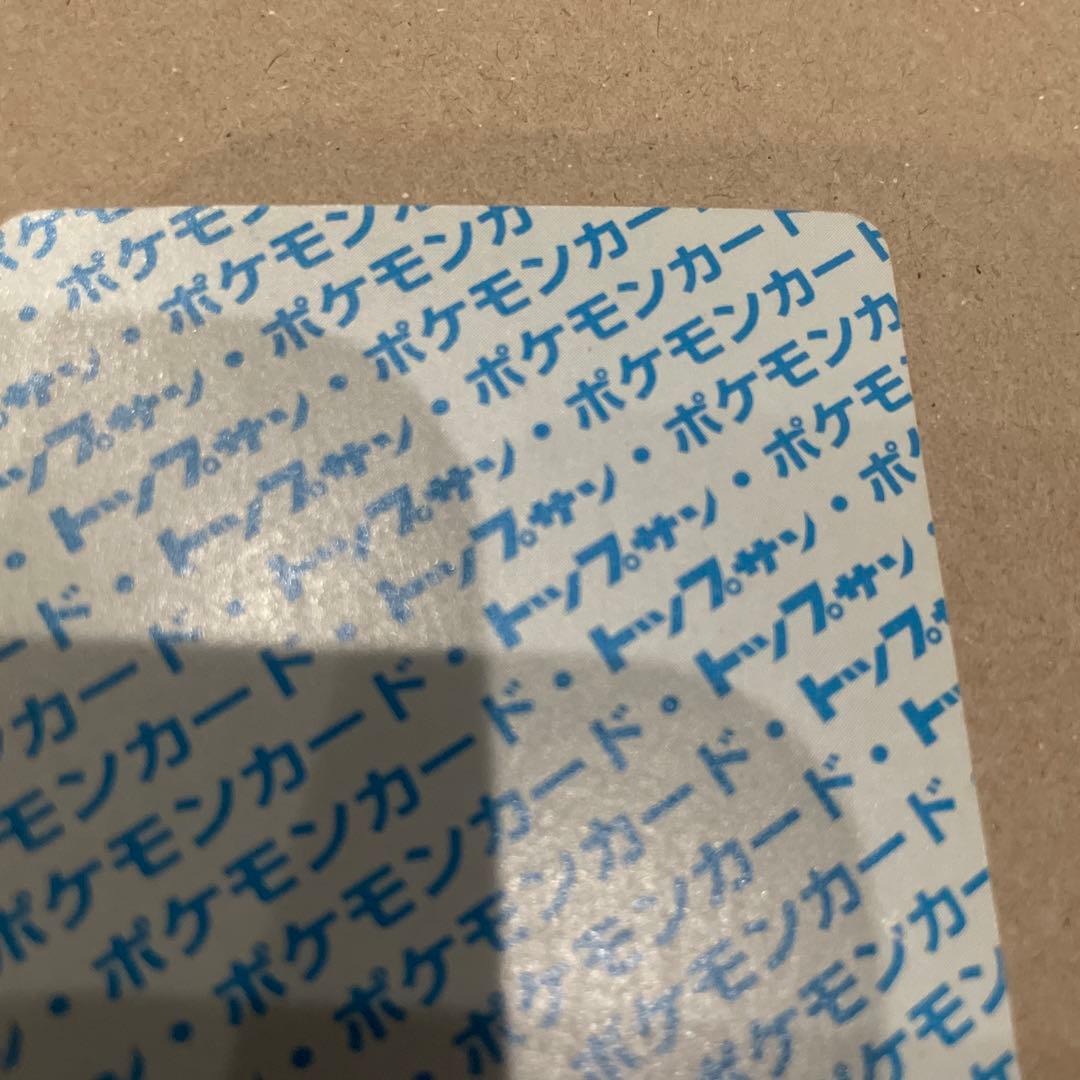 ポケ
・ポケモ
サン・ポケモン
プサン・ポケモンカ
・トップサン・ポケモンカー
ド・トップサン・ポケモンカード
カード・トップサン・ポケモンカード
モンカード・トップサン・ポケモンカ
ケモンカード・トップサン・ポケモ
ポケモンカード・トップサン・ポ
・ポケモンカード・トップサン・
・ポケモンカード・トップ
・ポケモンカード・ト
ポケモンカード
ポケモンカ
ポケモン